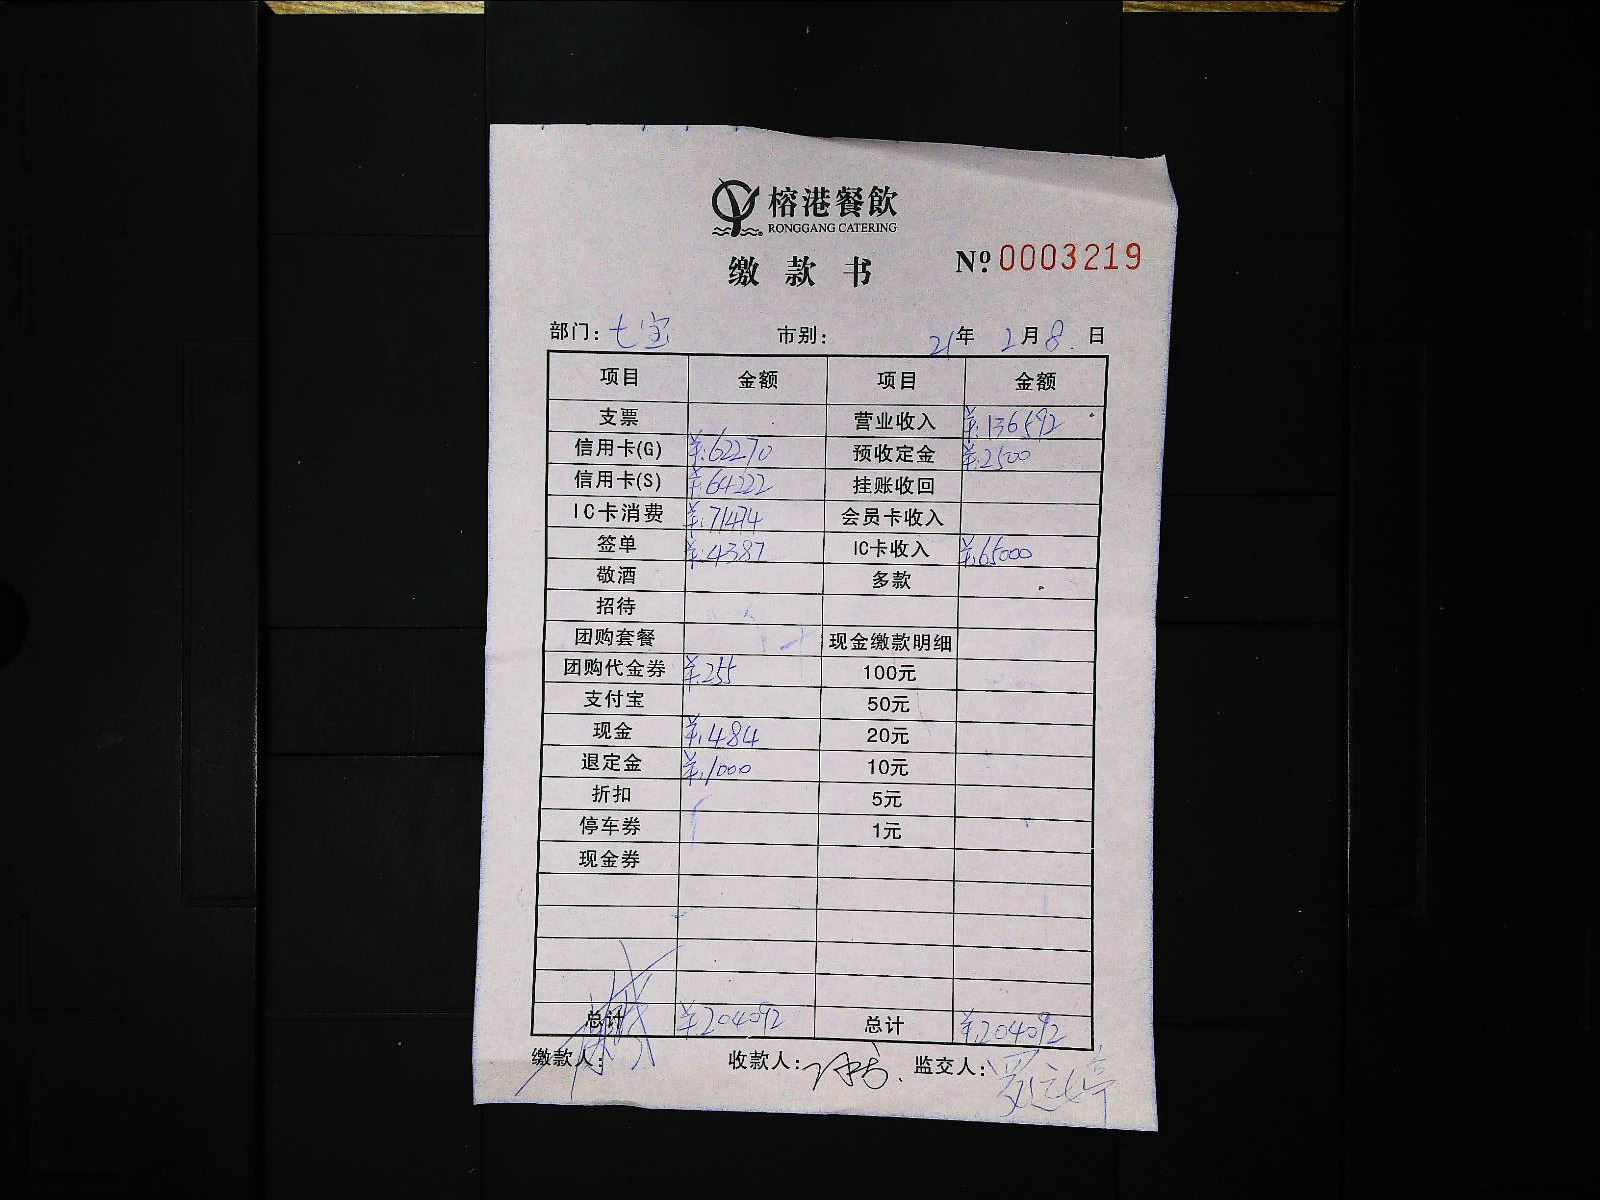 榕港餐飲
RONGGANG CATERING
缴款书 №0003219
部门: 七宝 市别: 21年 2月 8日
项目 金额 项目 金额
支票 营业收入 ¥:136592
信用卡(G) ¥:62270 预收定金 ¥:2500
信用卡(S) ¥:64222 挂账收回
IC卡消费 ¥:71474 会员卡收入
签单 ¥:4387 IC卡收入 ¥:65000
敬酒 多款
招待
团购套餐 现金缴款明细
团购代金券 ¥:255 100元
支付宝 50元
现金 ¥:484 20元
退定金 ¥:1000 10元
折扣 5元
停车券 1元
现金券
总计 ¥:204092 总计 ¥:204092
缴款人: 收款人: 监交人: